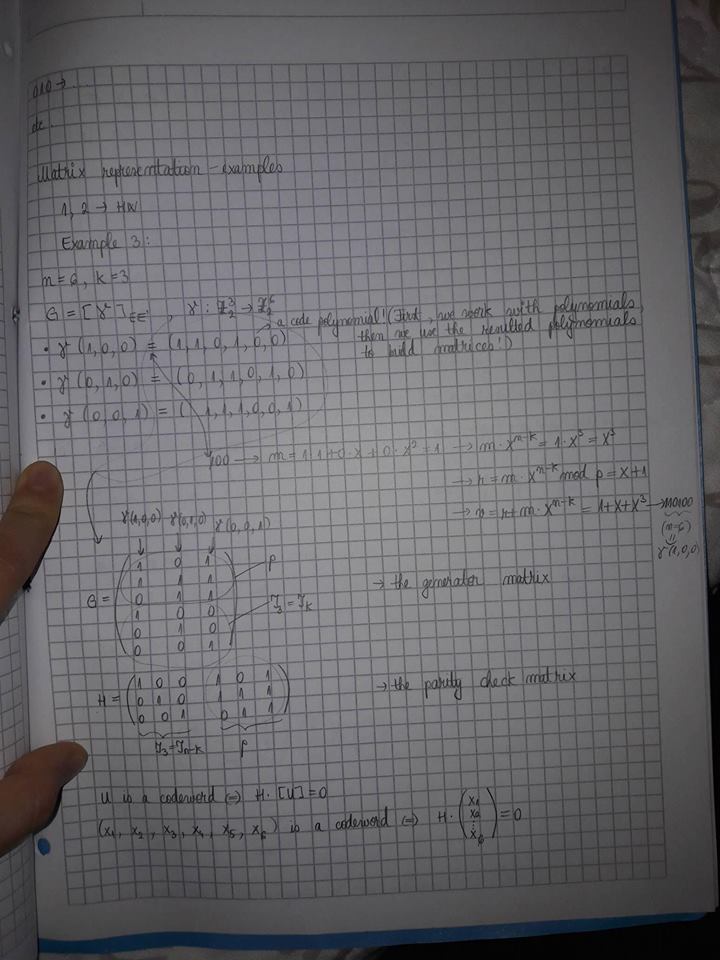 010 → ...
etc.
Matrix representation - examples
1, 2 → HW
Example 3:
n=6, k=3
G = [γ]_{EE'} , γ : ℤ₂³ → ℤ₂⁶
a code polynomial! (First, we work with polynomials,
then we use the resulted polynomials
to build matrices!)
• γ (1,0,0) = (1,1,0,1,0,0)
• γ (0,1,0) = (0,1,1,0,1,0)
• γ (0,0,1) = (1,1,1,0,0,1)
100 → m = 1·1+0·x+0·x² = 1 → m·x^{n-k} = 1·x³ = x³
→ r = m·x^{n-k} mod p = x+1
→ v = r+m·x^{n-k} = 1+x+x³ → 110100
(n=6)
γ(1,0,0)
γ(1,0,0) γ(0,1,0) γ(0,0,1)
G =
1 0 1
1 1 1
0 1 1
1 0 0
0 1 0
0 0 1
P
I₃ = I_k
→ the generator matrix
H =
1 0 0 1 0 1
0 1 0 1 1 1
0 0 1 0 1 1
I₃ = I_{n-k} P
→ the parity check matrix
u is a codeword ⇔ H · [u] = 0
(x₁, x₂, x₃, x₄, x₅, x₆) is a codeword ⇔ H · (x₁ x₂ ⋮ x₆) = 0